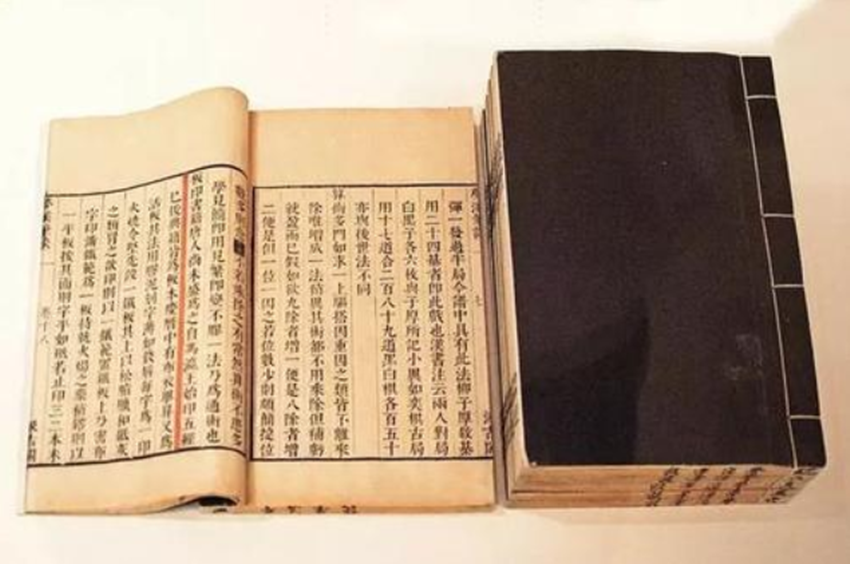 七
彈一發過半局今譜中具有此法柳子厚敘棊
用二十四棊者即此戲也漢書注云兩人對局
白黑子各六枚與子厚所記小異如奕棋古局
用十七道合二百八十九道黑白棋各百五十
亦與後世法不同
算術多門如求一上驅搭因重因之類皆不離乘
除唯增成一法稍異其術都不用乘除但補虧
就盈而已假如欲九除者增一便是八除者增
二便是但一位一因之若位數少則頗簡捷位
數多則愈不若乘除之有常然算術不患多
學見簡即用見繁即變不膠一法乃爲通術也
板印書籍唐人尚未盛爲之自馮瀛王始印五經
已後典籍皆爲板本慶曆中有布衣畢昇又爲
活板其法用膠泥刻字薄如錢脣每字爲一印
火燒令堅先設一鐵板其上以松脂臘和紙灰
之類冒之欲印則以一鐵範置鐵板上乃密布
字印滿鐵範爲一板持就火煬之藥稍鎔則以
一平板按其面則字平如砥若止印三二本未
卷十八
汲古閣